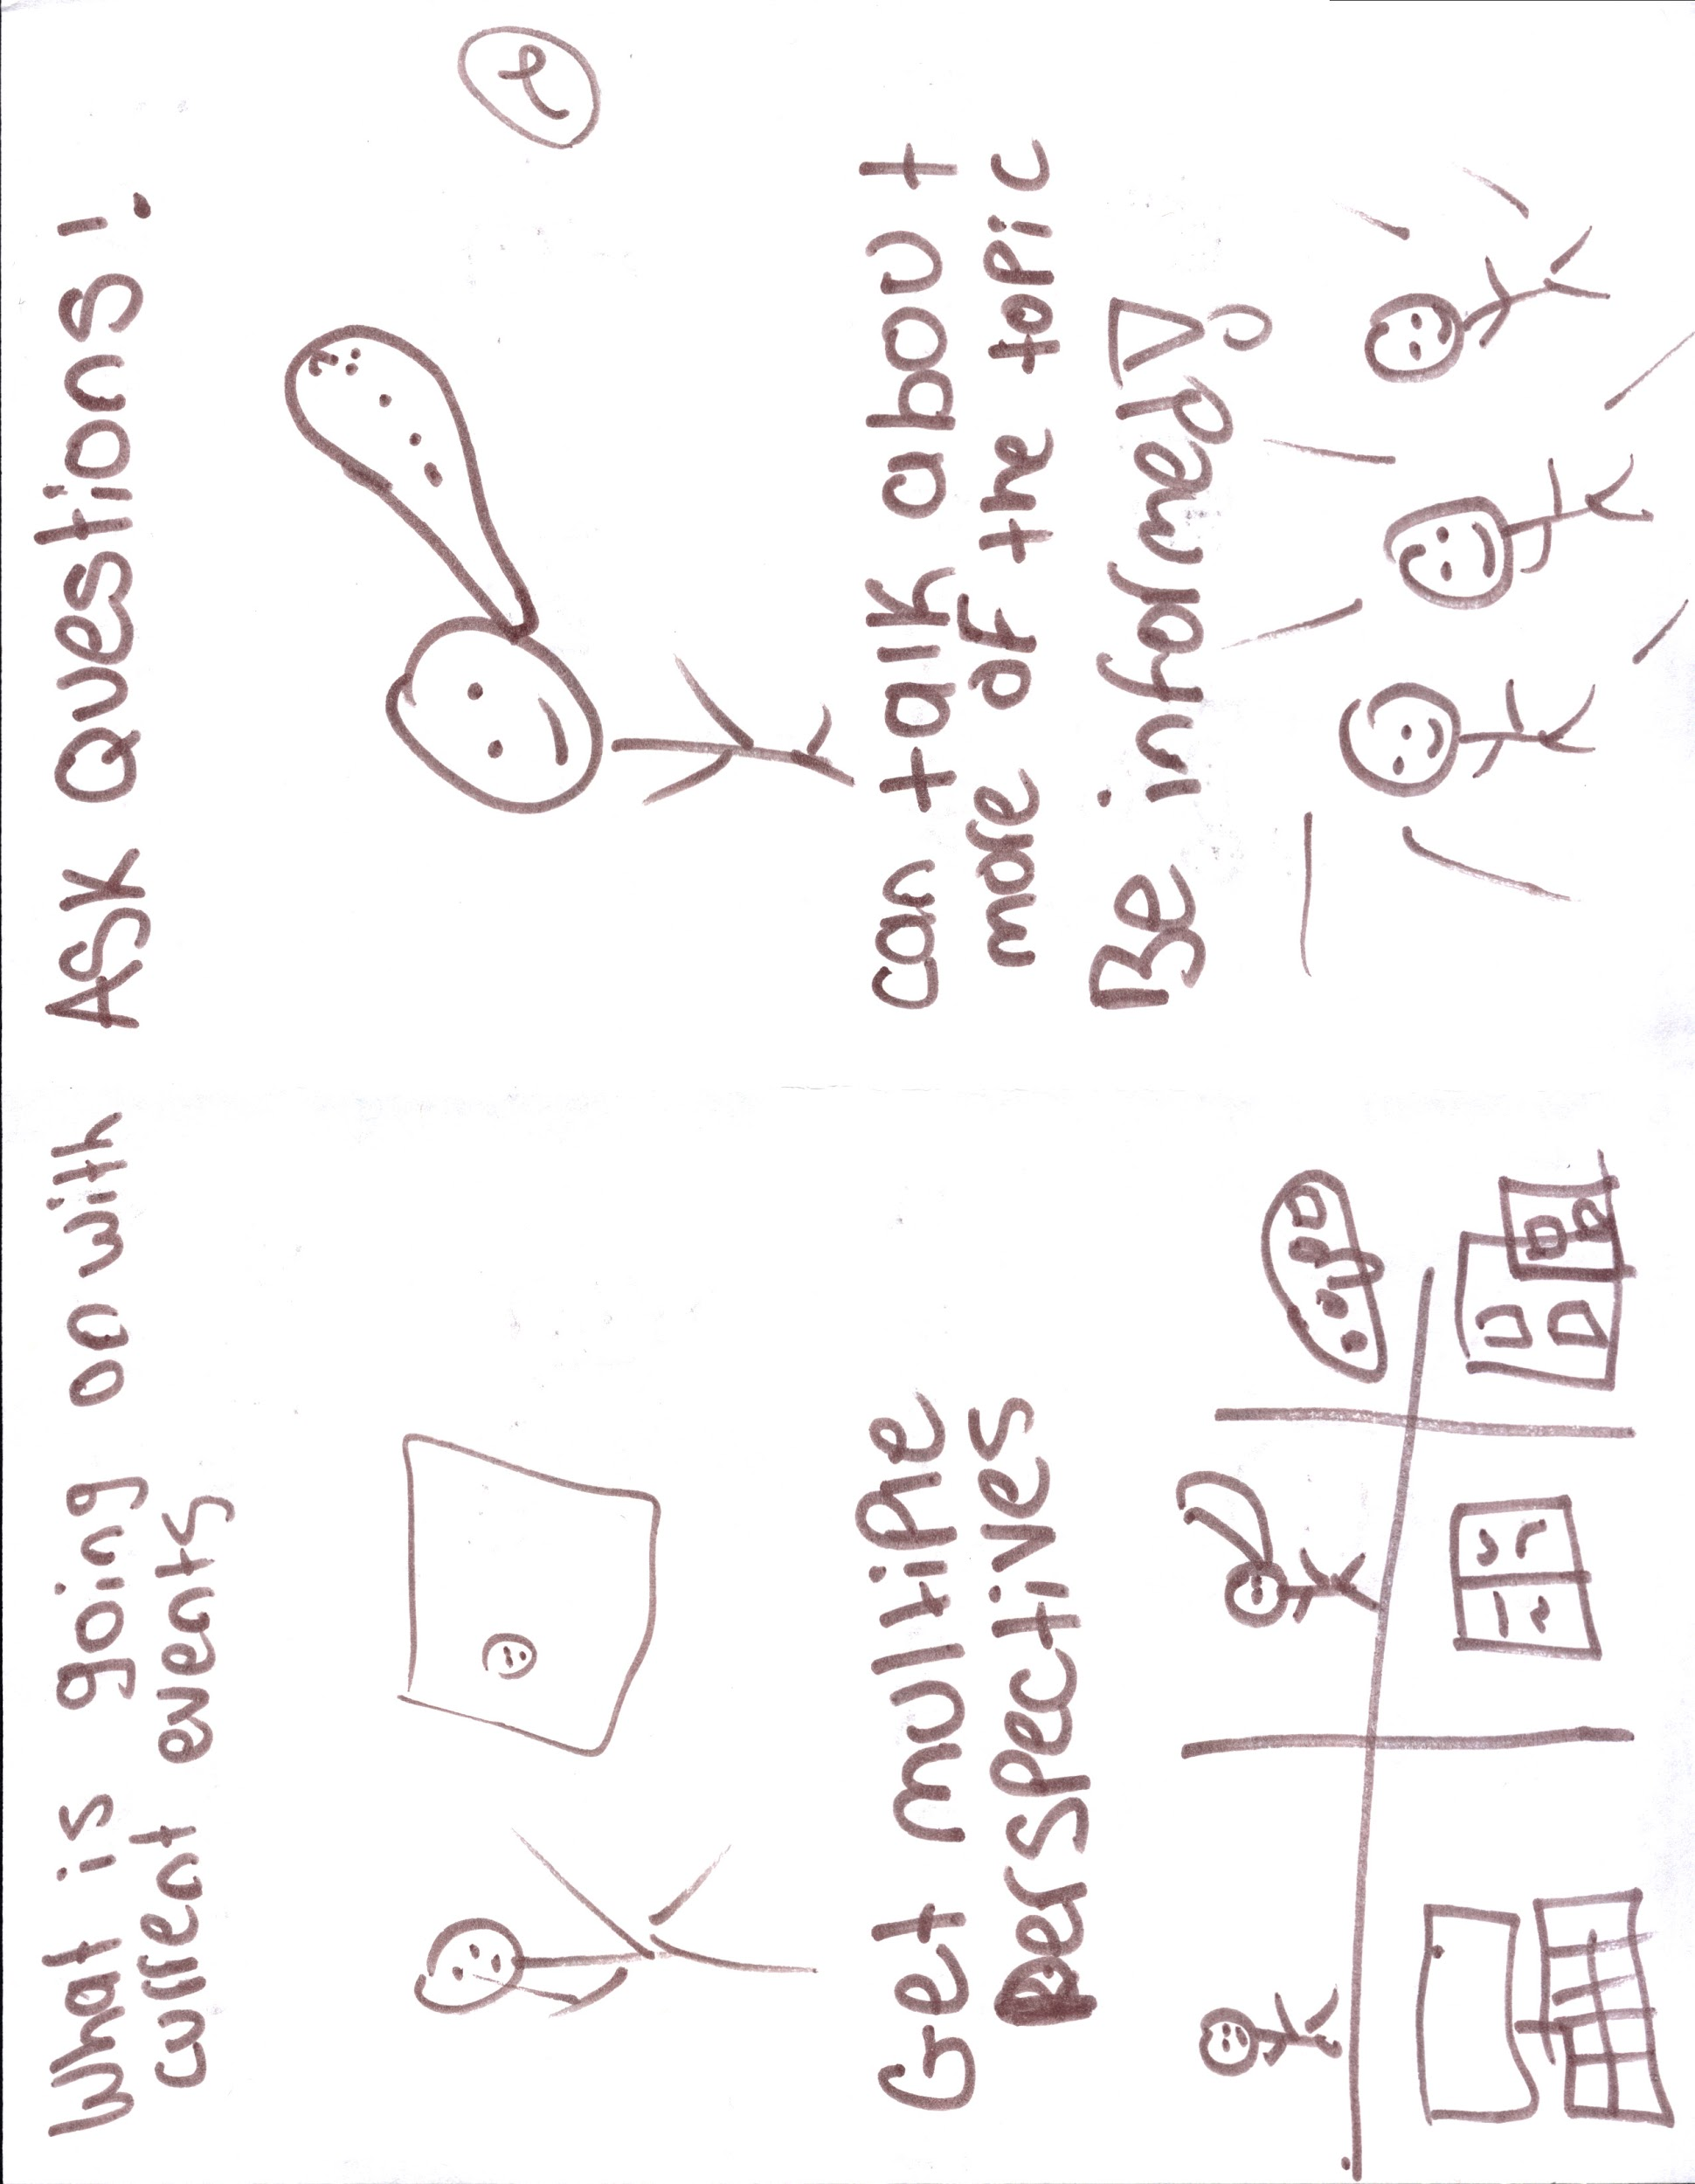 What is going on with
current events
Ask Questions!
?
2
Get multiple
perspectives
can talk about
more of the topic
Be informed!